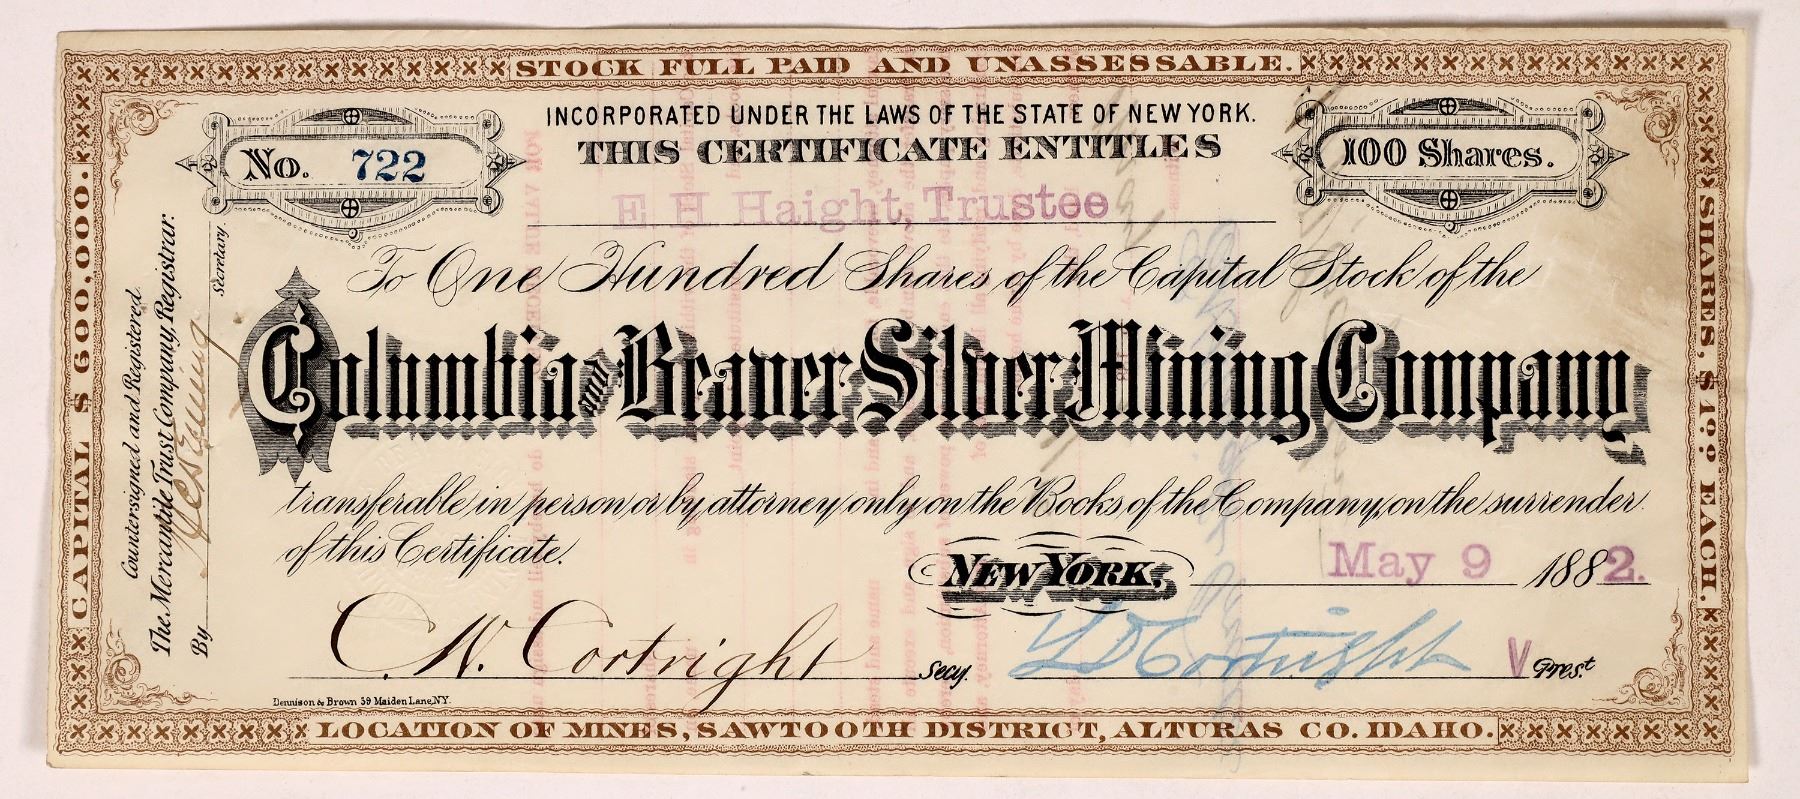 STOCK FULL PAID AND UNASSESSABLE.
INCORPORATED UNDER THE LAWS OF THE STATE OF NEW YORK.
No. 722
THIS CERTIFICATE ENTITLES
100 Shares.
E H Haight, Trustee
To One Hundred Shares of the Capital Stock of the
Columbia and Beaver Silver Mining Company
transferable in person or by attorney only on the Books of the Company, on the surrender
of this Certificate.
NEW YORK, May 9 1882.
C. W. Cortright Secy. L D Cortright V Prest
Dennison & Brown 59 Maiden Lane, NY.
LOCATION OF MINES, SAWTOOTH DISTRICT, ALTURAS CO. IDAHO.
CAPITAL $600.000.
Countersigned and Registered.
The Mercantile Trust Company, Registrar.
By Secretary
SHARES, $1.00 EACH.